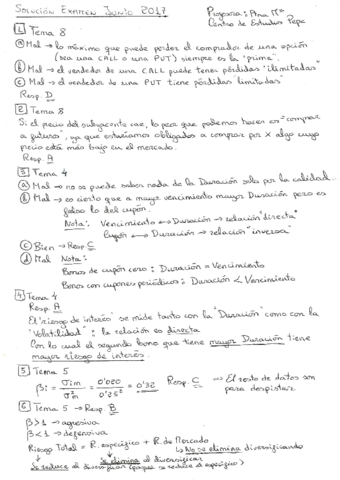 SOLUCIÓN EXAMEN JUNIO 2017
Profesora: Ana Mª
Centro de Estudios Pepe
1 Tema 8
a Mal → lo máximo que puede perder el comprador de una opción
(sea una CALL o una PUT) siempre es la "prima".
b Mal → el vendedor de una CALL puede tener pérdidas "ilimitadas"
c Mal → el vendedor de una PUT tiene pérdidas "limitadas"
Resp. D
2 Tema 8
Si el precio del subyacente cae, lo peor que podemos hacer es "comprar
a futuro", ya que estaríamos obligados a comprar por X algo cuyo
precio está más bajo en el mercado.
Resp. A
3 Tema 4
a Mal → no se puede saber nada de la Duración sólo por la calidad...
b Mal → es cierto que a mayor vencimiento mayor Duración pero es
falso lo del cupón.
Nota: Vencimiento ↔ Duración → relación "directa"
Cupón ↔ Duración → relación "inversa"
c Bien → Resp. C
d Mal Nota:
Bonos de cupón cero: Duración = Vencimiento
Bonos con cupones periódicos: Duración < Vencimiento
4 Tema 4
Resp. A
El "riesgo de interés" se mide tanto con la "Duración" como con la
"Volatilidad": la relación es directa
Con lo cual el segundo bono que tiene mayor Duración tiene
mayor riesgo de interés.
5 Tema 5
βi = σim / σ²m = 0'020 / 0'25² = 0'32 Resp. C → El resto de datos son
para despistar.
6 Tema 5 → Resp. B
β > 1 → agresiva
β < 1 → defensiva
Riesgo Total = R. específico + R. de Mercado
→ No se elimina diversificando
Se elimina al diversificar
Se reduce al diversificar (porque se reduce el específico)